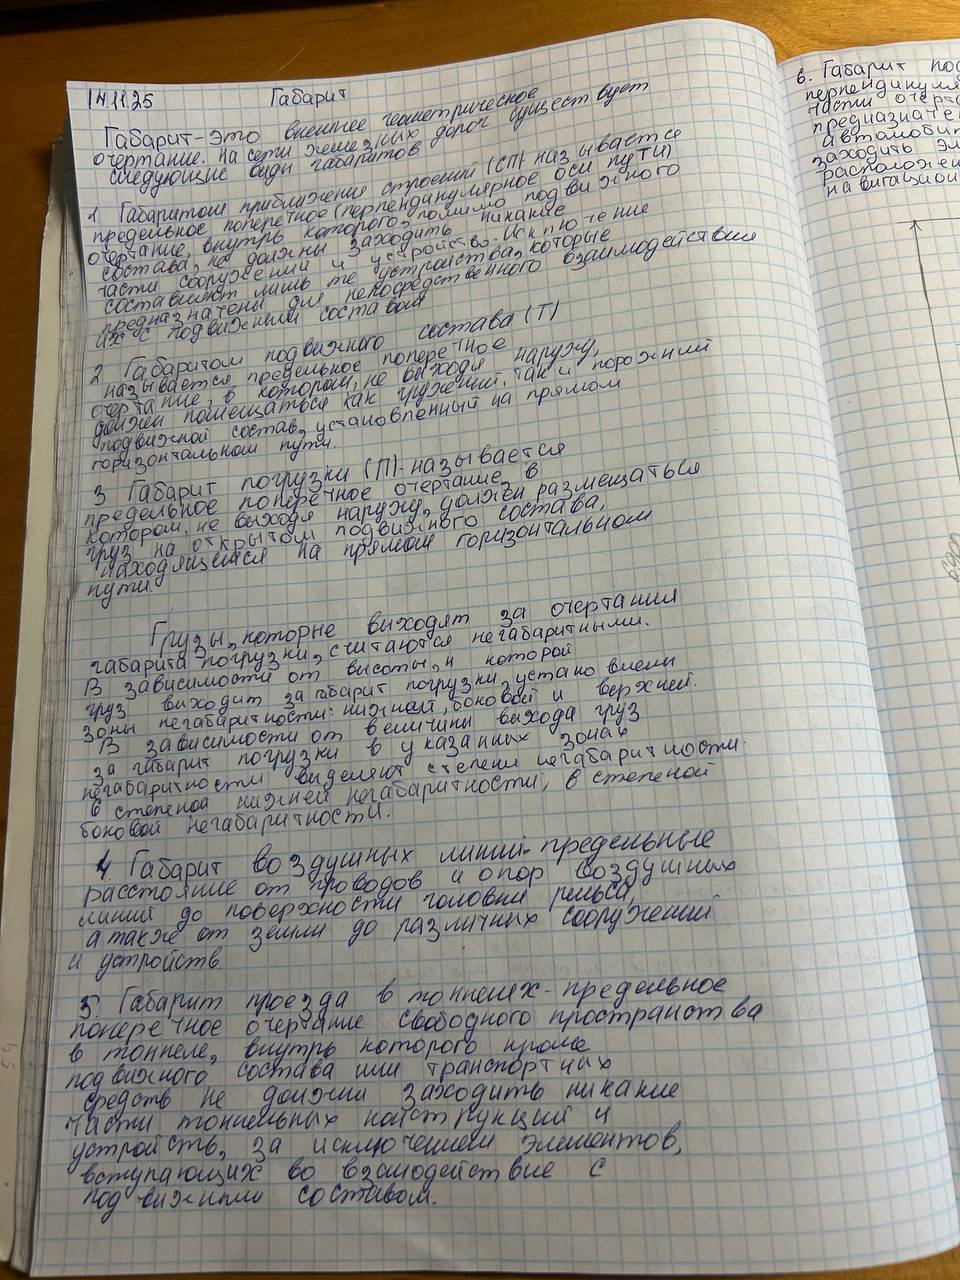 14.11.25 Габарит
Габарит-это внешнее геометрическое
очертание. На сети железных дорог существует
следующие виды габаритов
1 Габаритом приближения строений (СП) называется
предельное поперечное (перпендикулярное оси пути)
очертание, внутрь которого помимо подвижного
состава, не должны заходить никакие
части сооружений и устройство. Исключение
составляют лишь те устройства, которые
предназначены для непосредственного взаимодействия
их с подвижным составом
2 Габаритом подвижного состава (Т)
называется предельное поперечное
очертание, в котором, не выходя наружу,
должен помещаться как груженый, так и порожний
подвижной состав, установленный на прямом
горизонтальном пути.
3 Габарит погрузки (П)-называется
предельное поперечное очертание, в
котором, не выходя наружу, должен размещаться
груз на открытом подвижного состава,
находящемся на прямом горизонтальном
пути.
Грузы, которые выходят за очертания
габарита погрузки, считаются негабаритными.
В зависимости от высоты, н которой
груз выходит за габарит погрузки, установлены
зоны негабаритности: нижней, боковой и верхней.
В зависимости от величины выхода груз
за габарит погрузки в указанных зонах
негабаритности виделяют степени негабаритности:
6 степеной нижней негабаритности, 6 степеной
боковой негабаритности.
4 Габарит воздушных линий-предельные
расстояние от проводов и опор воздушных
линий до поверхности головки рельса,
а также от земли до различных сооружений
и устройств
5. Габарит проезда в тоннелях-предельное
поперечное очертание свободного пространства
в тоннеле, внутрь которого кроме
подвижного состава или транспортных
средств не должни заходить никакие
части тоннельных конструкций и
устройств, за исключением элементов,
вступающих во взамодействие с
подвижным составом.
6. Габарит
перпендикуля
части очерт
предназначе
автомобил
заходить эл
расположен
навигацион